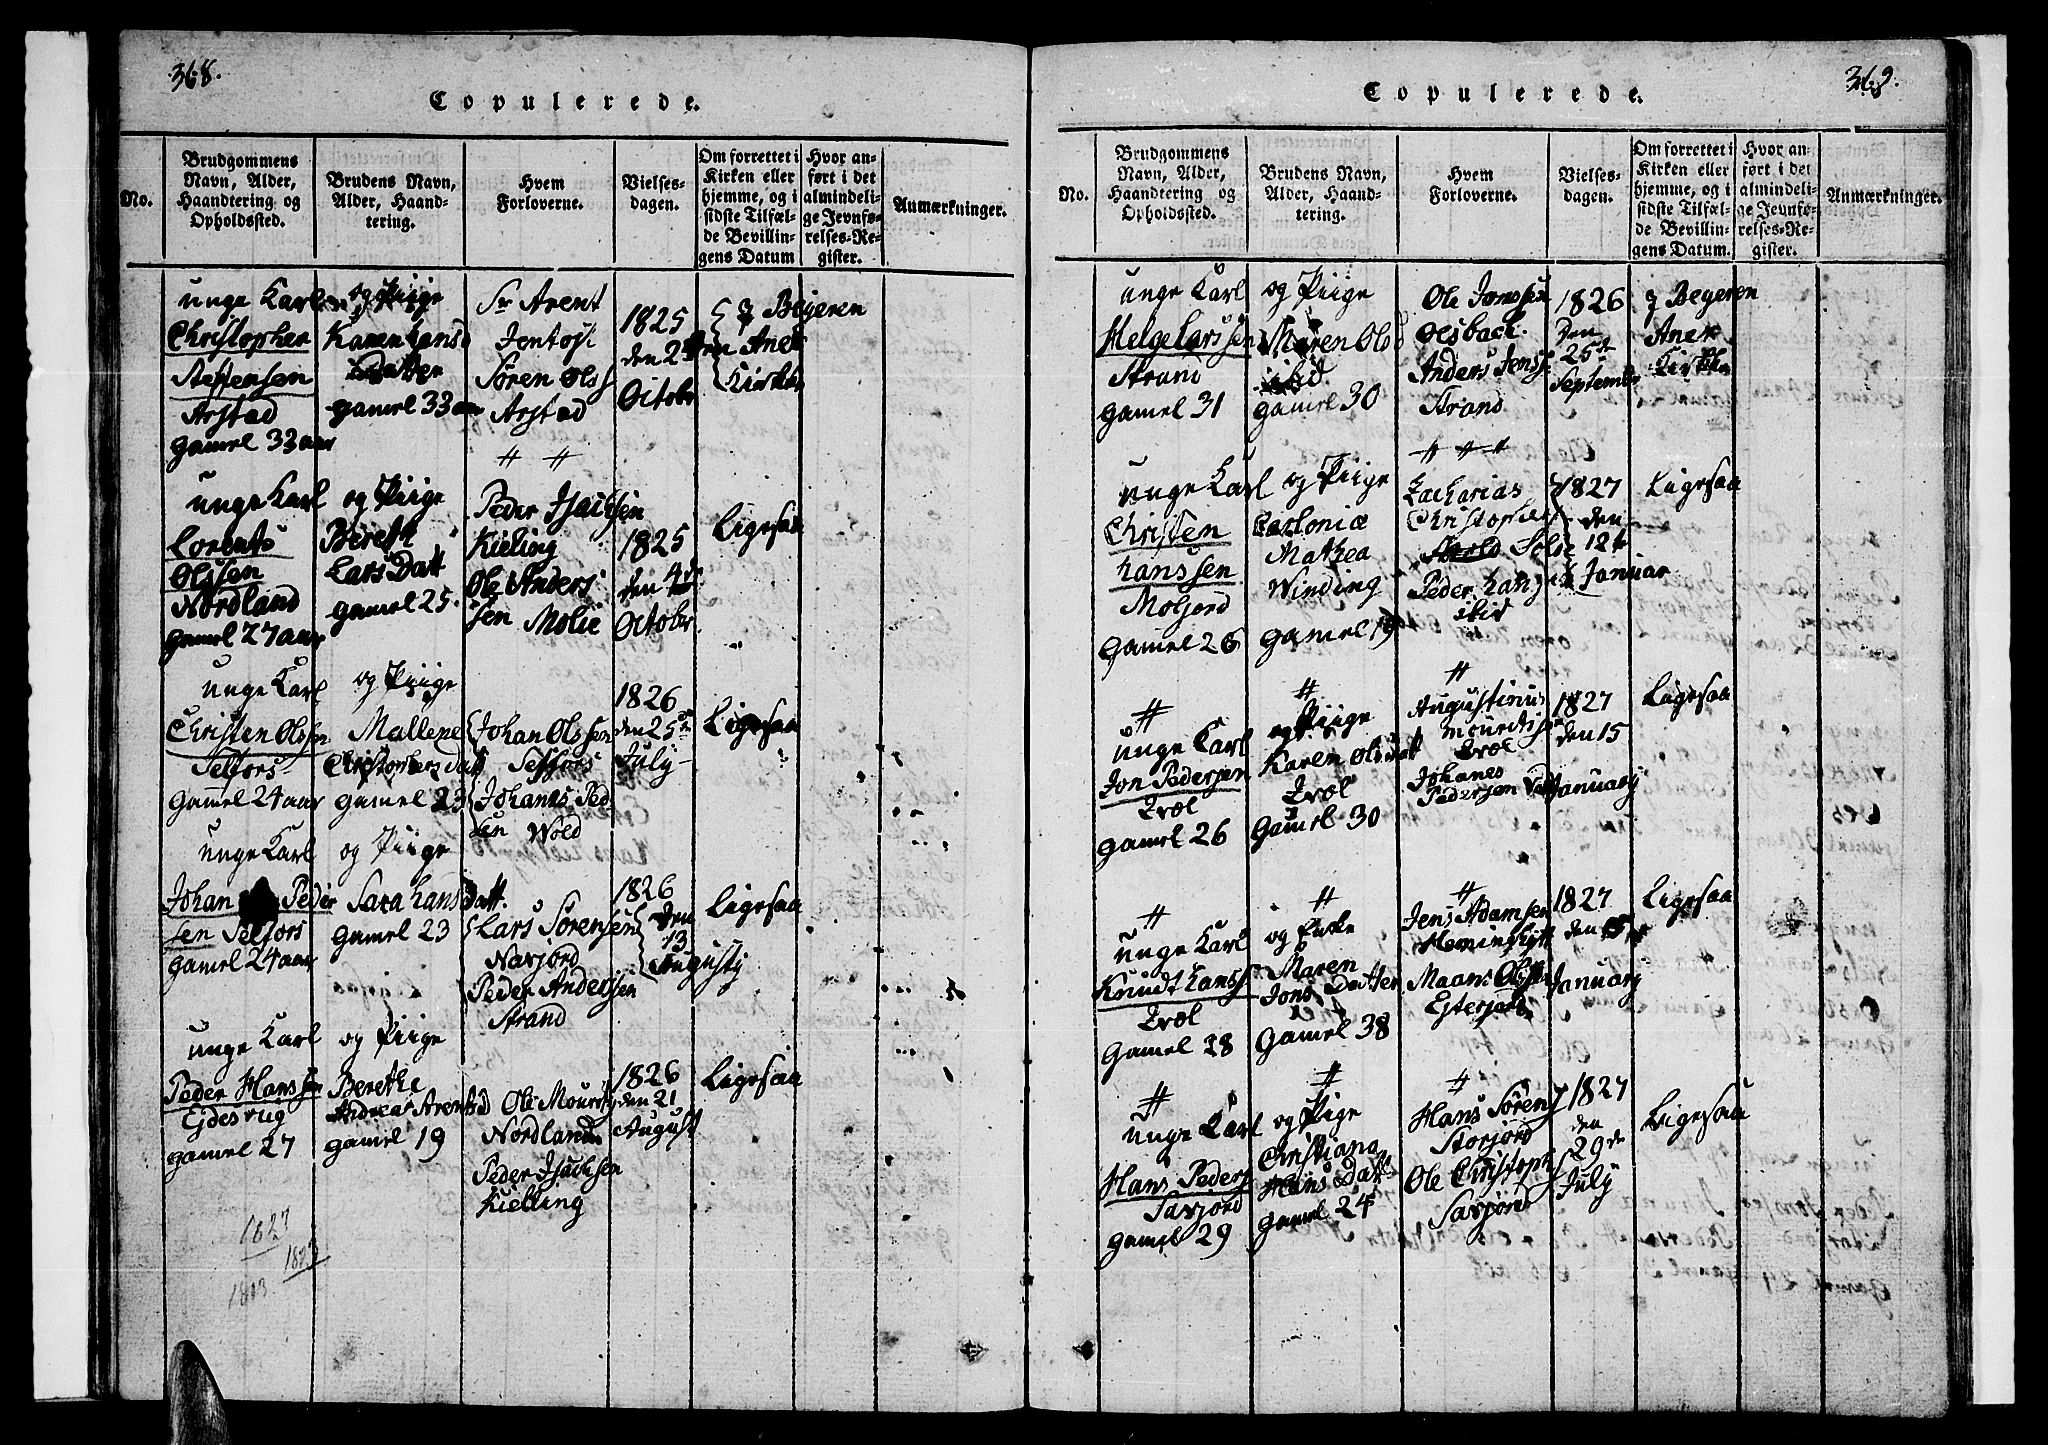 368.
Copulerede.
No.
Brudgommens
Navn, Alder,
Haandtering og
Opholdssted.
Brudens Navn,
Alder, Haand-
tering.
Hvem
Forloverne.
Vielses-
dagen.
Om forrettet i
Kirken eller
hjemme, og i
sidste Tilfæl-
de Bevillin-
gens Datum
Hvor an-
ført i det
almindeli-
ge Jevnfø-
relses-Re-
gister.
Anmærkninger.
unge Karl
Christopher
Steffensen
Arstad
gamel 33 aar
og Piige
Karen Hans
Datter
gamel 33 aar
Sr Arent
Jentoft
Søren Olss
Arstad
1825
den 2
October
Beyeren
Anex
Kirke
unge Karl
Lorents
Olssen
Nordland
gamel 27 aar
og Piige
Bereth
Lars Datt
gamel 25
Peder Isachsen
Kieling
Ole Anders
sen Molie
1825
den 4
October
Ligesaa
unge Karl
Christen Olssen
Selfors
gamel 24 aar
og Piige
Mallene
Christophers Datt
gamel 23
Johan Olssen
Selfors
Johanes Ped
sen Wold
1826
den 25
July
Ligesaa
unge Karl
Johan Peder
sen Selfors
gamel 24 aar
og Piige
Sara Hans Datt.
gamel 23
Lars Sørensen
Navjord
Peder Anderssen
Strand
1826
den
13
Augusty
Ligesaa
unge Karl
Peder Hanssen
Ejdesvug
gamel 27
og Piige
Berethe
Andrea Arents
gamel 19
Ole Mouri
Nordland
Peder Isachsen
Kielling
1826
den 21
August
Ligesaa
1827
1823
369.
Copulerede.
No.
Brudgommens
Navn, Alder,
Haandtering og
Opholdssted.
Brudens Navn,
Alder, Haand-
tering.
Hvem
Forloverne.
Vielses-
dagen.
Om forrettet i
Kirken eller
hjemme, og i
sidste Tilfæl-
de Bevillin-
gens Datum.
Hvor an-
ført i det
almindeli-
ge Jevnfø-
relses-Re-
gister.
Anmærkninger.
unge Karl
Helge Larssen
Strand
gamel 31
og Piige
Maren Ols
ibid
gamel 30
Ole Jonssen
Olsbach
Anders Jenss
Strand
1826
Den
25
September
Beyeren
Anex
Kirke
unge Karl
Christen
Hanssen
Moljord
gamel 26
og Piige
Carlonia
Mathea
Winding
gamel 19
Zacharias
Christophers
Peder Hans
ibid
1827
den
12
Januar
Ligesaa
unge Karl
Jon Pedersen
Tvol
gamel 26
og Piige
Karen Ols Datt
Tvol
gamel 30
Augustinus
Mouritsen
Tvol
Johanes
Pedersen
1827
den 15
January
Ligesaa
unge Karl
Knudt Hanss
Tvol
gamel 28
og Enke
Maren
Jons Datter
gamel 38
Jens Adamsen
Hemminghytt
Maans Olssen
Esterjord
1827
den
January
Ligesaa
unge Karl
Hans Peders
Savjord
gamel 29
og Piige
Christiana
Hans Datt
gamel 24
Hans Sørens
Storjord
Ole Christoph
Savjord
1827
den
29
July
Ligesaa